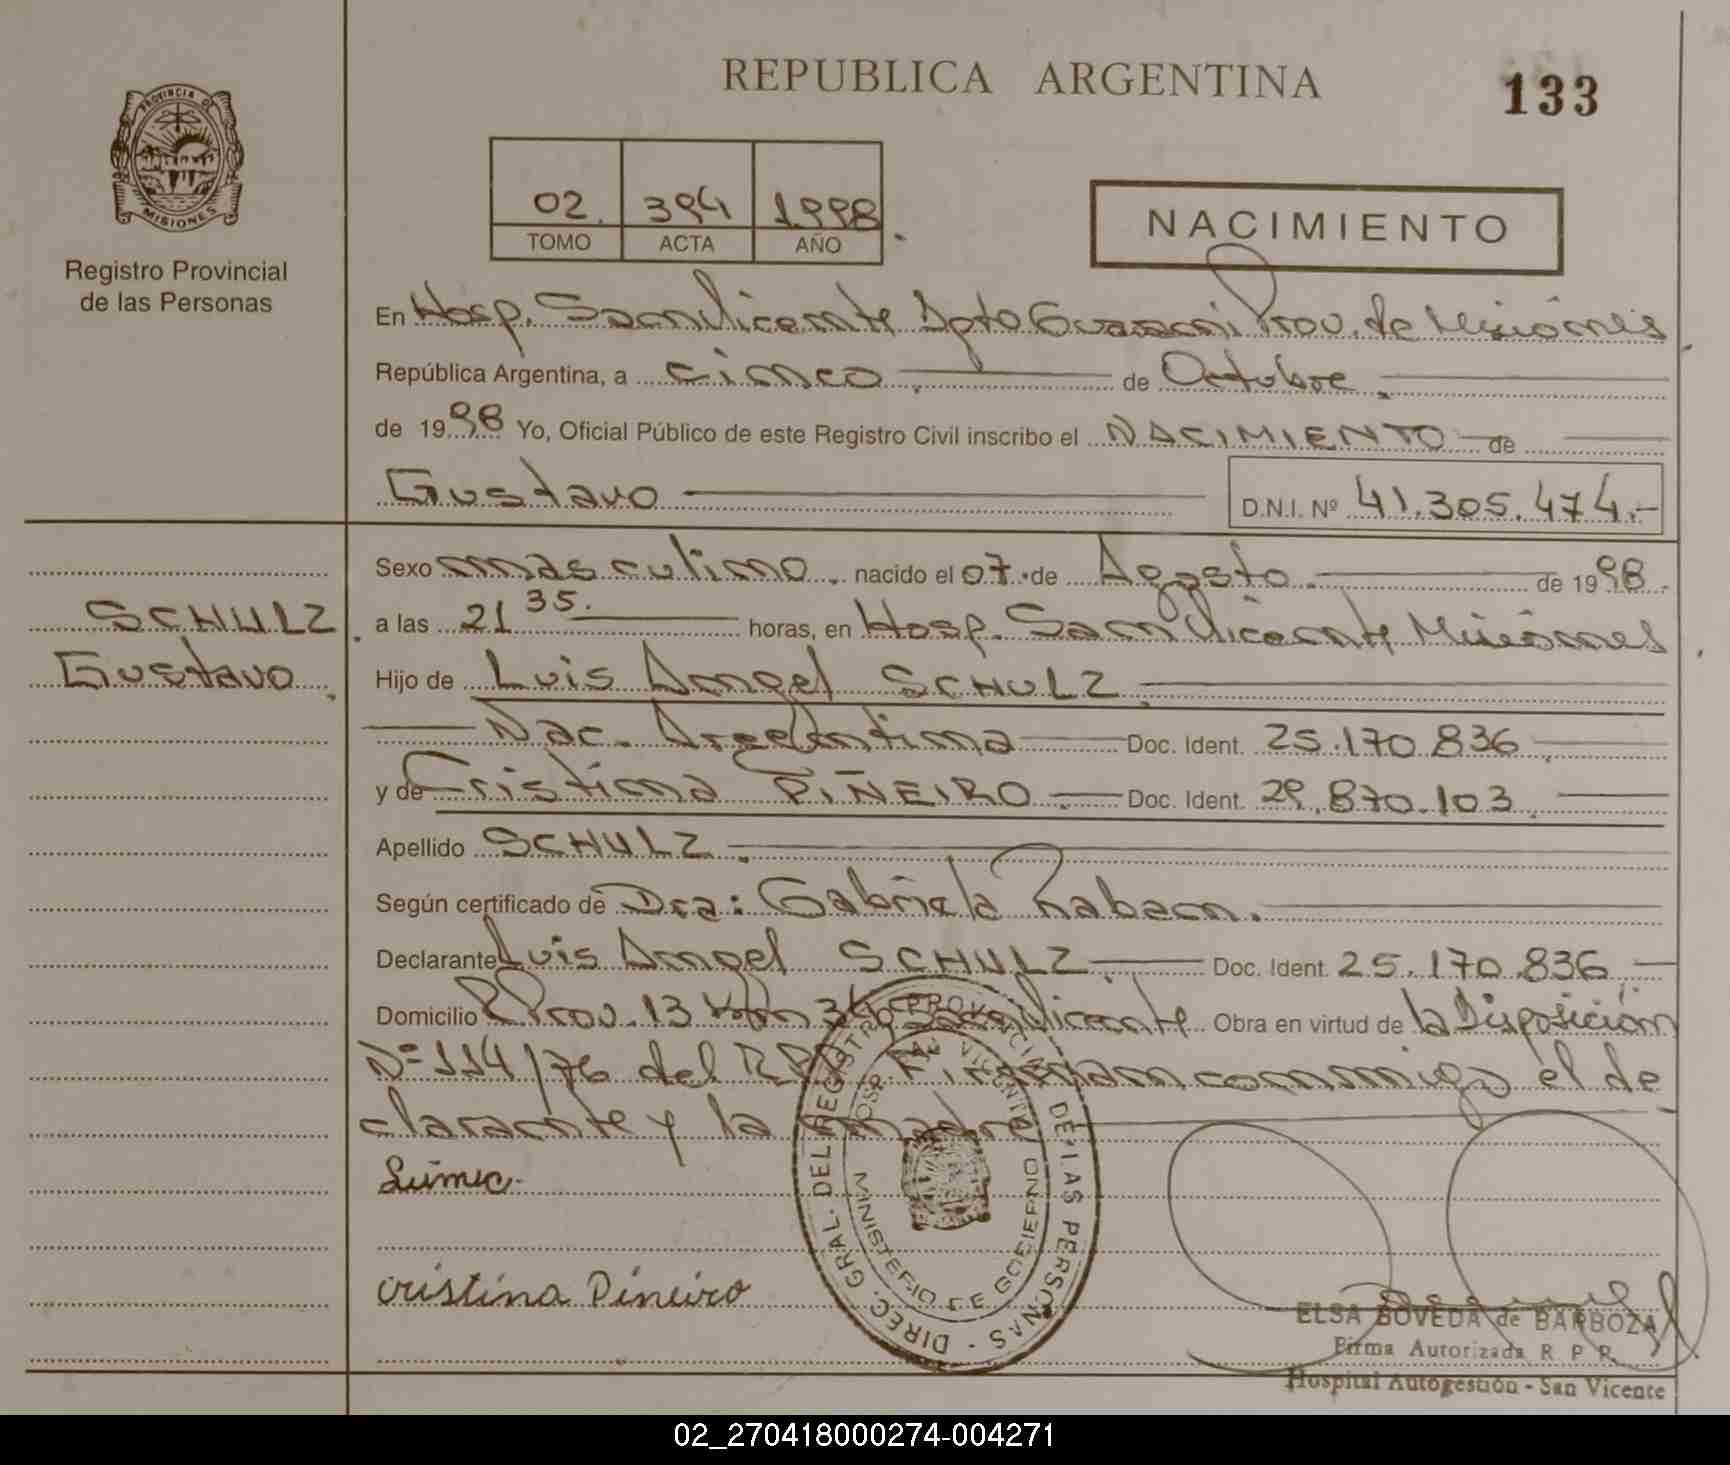 REPUBLICA ARGENTINA
133
PROVINCIA DE
MISIONES
Registro Provincial
de las Personas
02. 394 1998
TOMO ACTA AÑO
NACIMIENTO
En Hosp. San Vicente Dpto Guarani Prov. de Misiones
República Argentina, a cinco de Octubre.
de 1998 Yo, Oficial Público de este Registro Civil inscribo el NACIMIENTO de
Gustavo
D.N.I. Nº 41.305.474.-
SCHULZ
Gustavo
Sexo masculino. nacido el 07 de Agosto. de 1998.
a las 21 35. horas, en Hosp. San Vicente Misiones
Hijo de Luis Angel SCHULZ
Nac. Argentina Doc. Ident. 25.170.836
y de Cristina PIÑEIRO Doc. Ident. 29.870.103
Apellido SCHULZ
Según certificado de Dra: Gabriela Raban.
Declarante Luis Angel SCHULZ Doc. Ident. 25.170.836
Domicilio R Prov. 13 Km San Vicente Obra en virtud de la Disposición
Nº 114/76 del RPP Firman conmigo el de
clarante y la madre
Cristina Pineiro
DIREC. GRAL. DEL REGISTRO PROVINCIAL DE LAS PERSONAS -
HOSP. SAN VICENTE
MINISTERIO DE GOBIERNO
ELSA BOVEDA de BARBOZA
Firma Autorizada R. P. P.
Hospital Autogestión - San Vicente
02_270418000274-004271